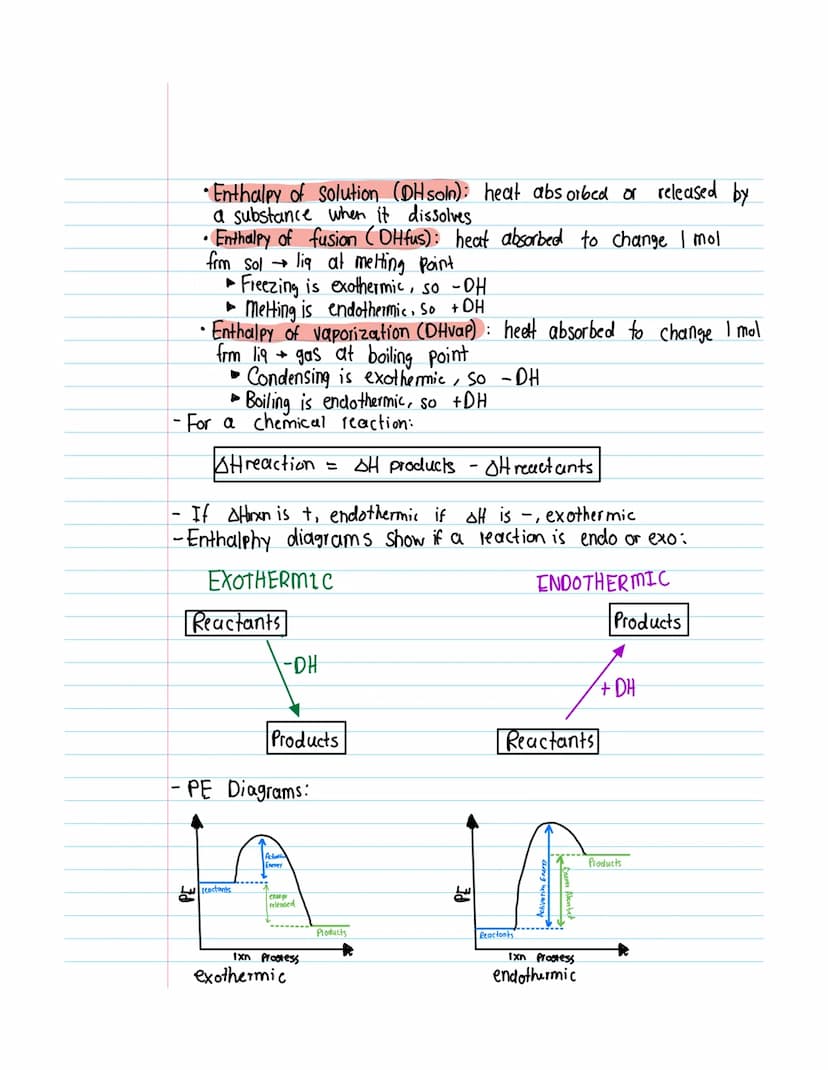 • Enthalpy of solution (DHsoln): heat absorbed or released by
a substance when it dissolves
• Enthalpy of fusion (DHfus): heat absorbed to change 1 mol
frm sol → liq at melting point
▸ Freezing is exothermic, so -DH
▸ Melting is endothermic, so +DH
• Enthalpy of vaporization (DHvap): heat absorbed to change 1 mol
frm liq → gas at boiling point
▸ Condensing is exothermic, so -DH
▸ Boiling is endothermic, so +DH
- For a chemical reaction:
ΔHreaction = ΔH products - ΔH reactants
- If ΔHrxn is +, endothermic if ΔH is -, exothermic
- Enthalphy diagrams show if a reaction is endo or exo:
EXOTHERMIC ENDOTHERMIC
Reactants Products
-DH
+DH
Products Reactants
- PE Diagrams:
PE
reactants
Activation
Energy
energy
released
Products
rxn Progress
exothermic
PE
Reactants
Activation Energy
Energy Absorbed
Products
rxn Progress
endothermic